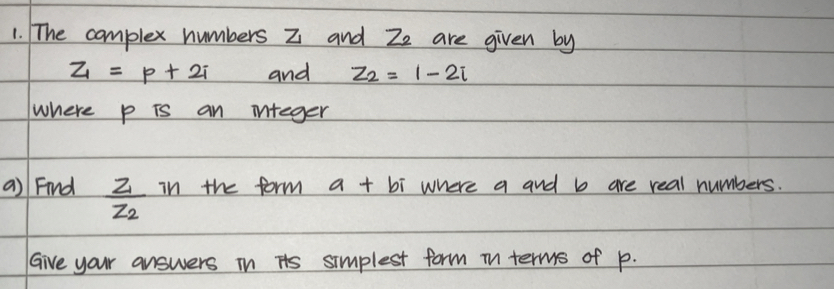 1. The complex numbers Z1 and Z2 are given by
Z1 = p + 2i and Z2 = 1 - 2i
where p is an integer
a) Find Z1/Z2 in the form a + bi where a and b are real numbers.
Give your answers in its simplest form in terms of p.